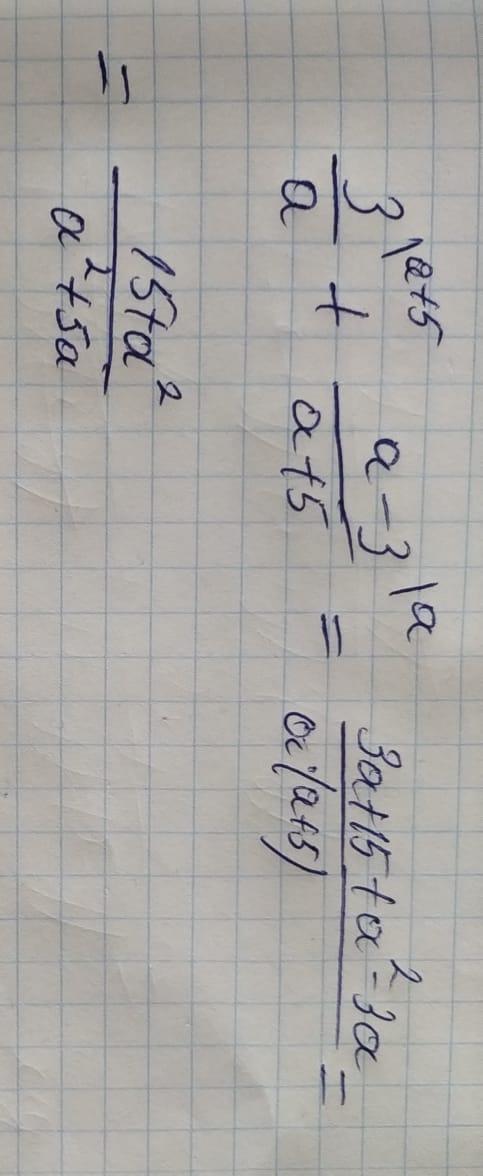 3/a \a+5 + (a-3)/(a+5) \a = (3a+15+a²-3a)/(a·(a+5)) =
= (15+a²)/(a²+5a)